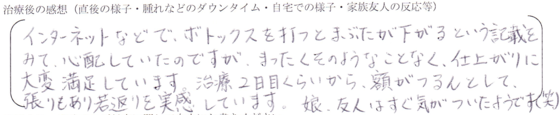 治療後の感想（直後の様子・腫れなどのダウンタイム・自宅での様子・家族友人の反応等）
インターネットなどで、ボトックスを打つとまぶたが下がるという記載を
みて、心配していたのですが、まったくそのようなことなく、仕上がりに
大変満足しています。治療2日目くらいから、額がつるんとして、
張りもあり若返りを実感しています。娘、友人はすぐ気がついたようです(笑)